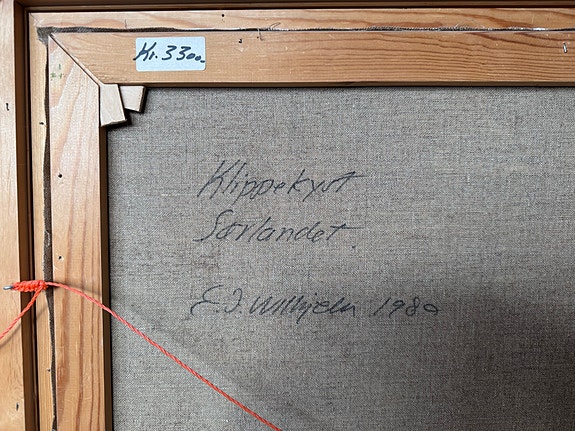 Kr. 3300,-
Klippekyst
Sørlandet.
E. J. Willhjelm 1980